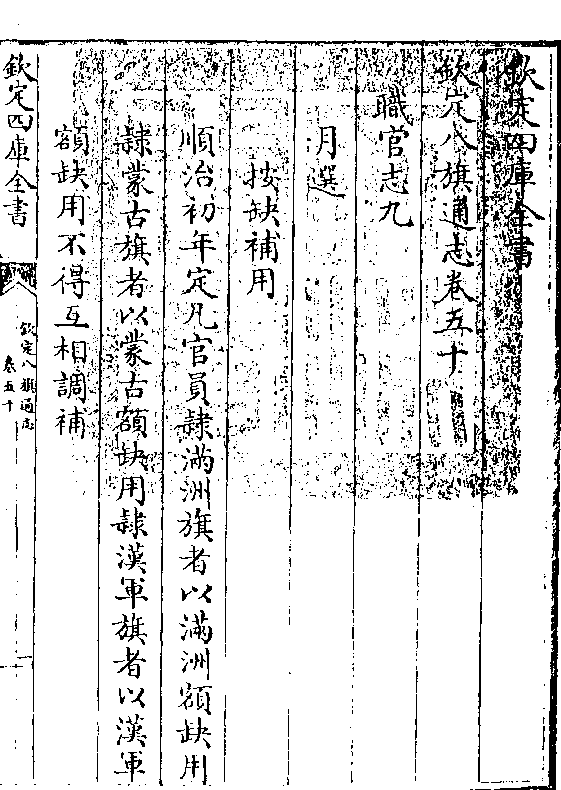 欽定四庫全書
欽定八旗通志卷五十
職官志九
月選
按缺補用
順治初年定凡官員隷滿洲旗者以滿洲額缺用
隷蒙古旗者以蒙古額缺用隷漢軍旗者以漢軍
額缺用不得互相調補
欽定四庫全書
欽定八旗通志
卷五十
一